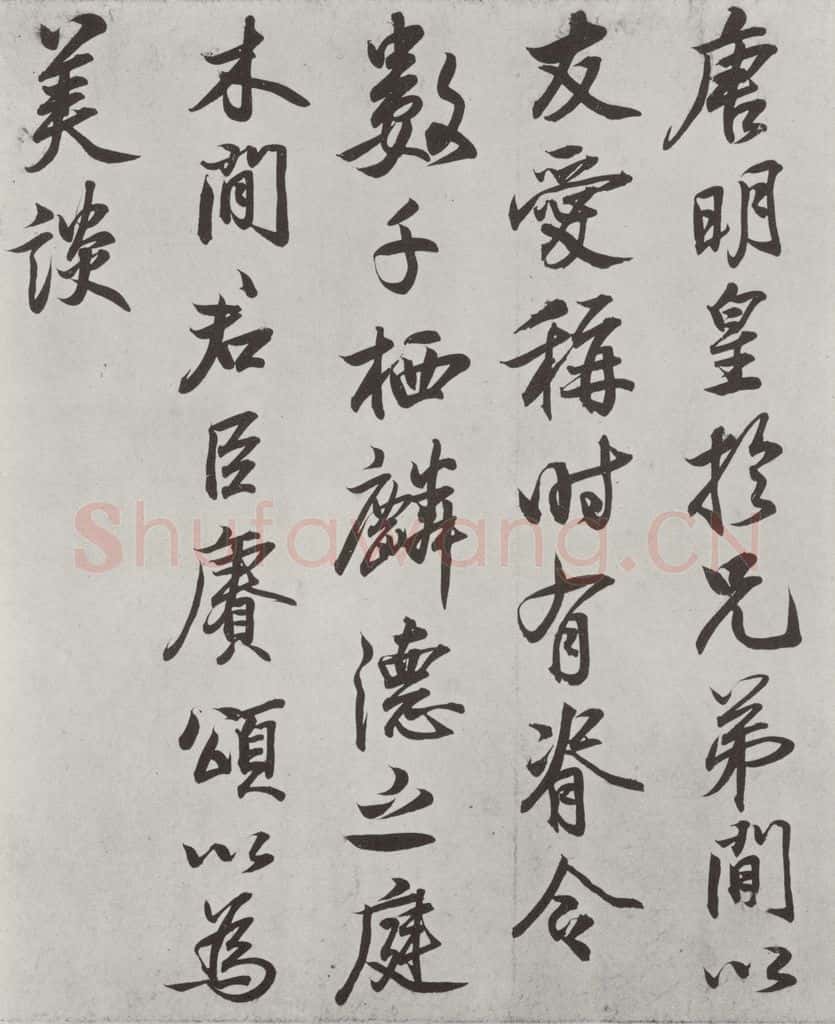 唐明皇於兄弟間以
友愛稱時有脊令
數千栖麟德之庭
木間君臣賡頌以為
美談
Shufawang.CN